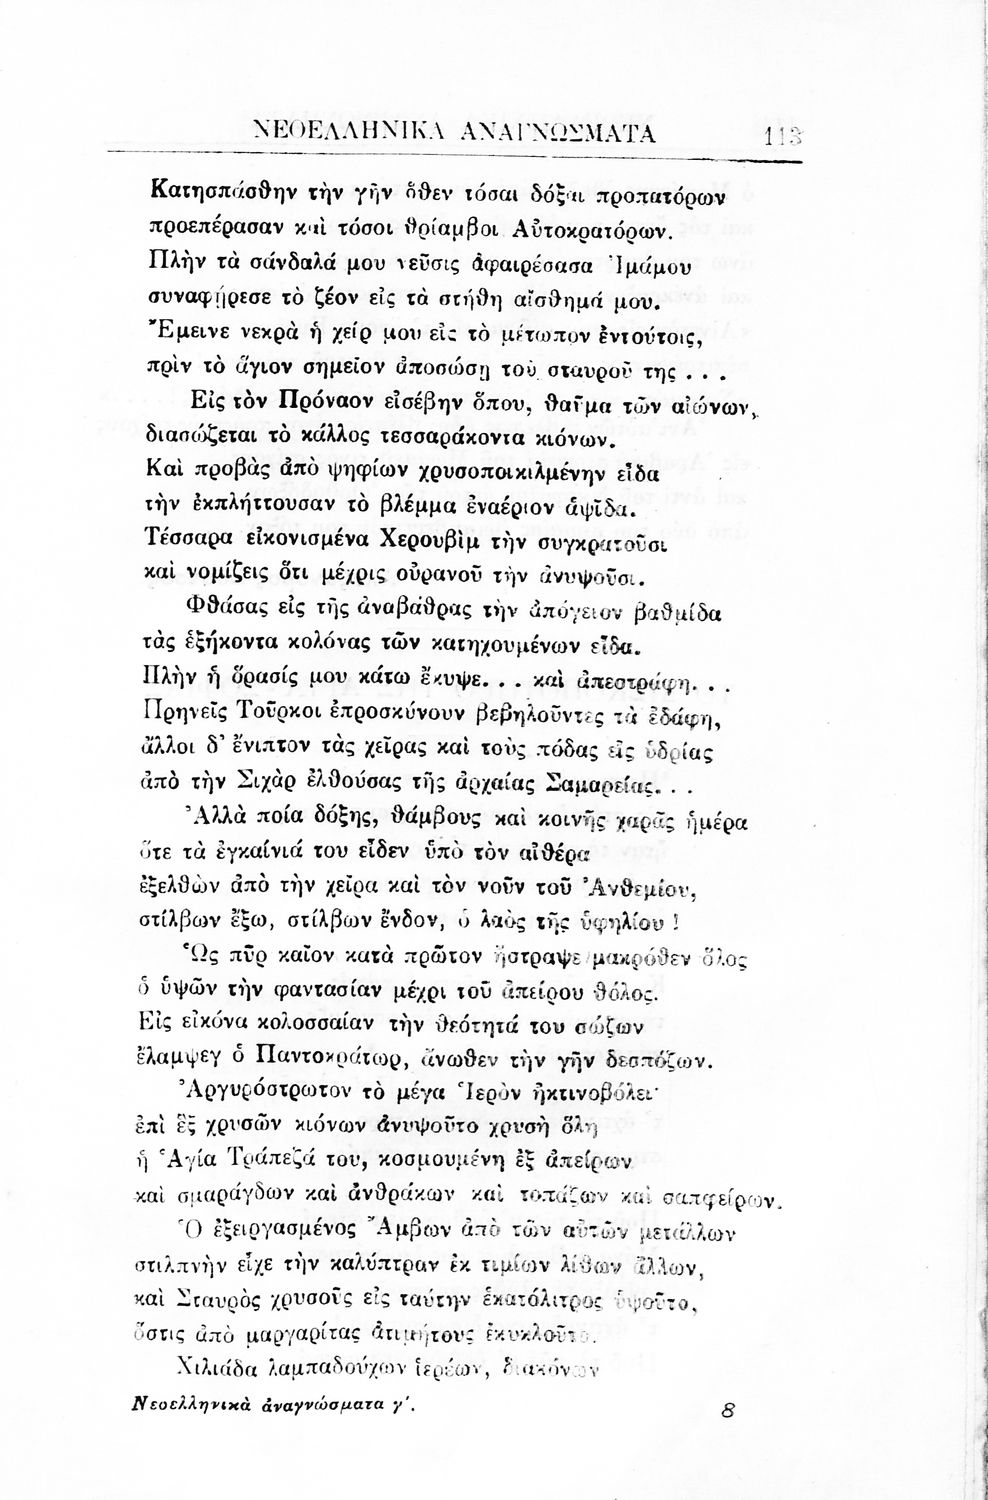 ΝΕΟΕΛΛΗΝΙΚΑ ΑΝΑΓΝΩΣΜΑΤΑ 113
Κατησπάσθην τὴν γῆν ὅθεν τόσαι δόξαι προπατόρων
προεπέρασαν καὶ τόσοι θρίαμβοι Αὐτοκρατόρων.
Πλὴν τὰ σάνδαλά μου νεῦσις ἀφαιρέσασα Ἰμάμου
συναφῄρεσε τὸ ζέον εἰς τὰ στήθη αἴσθημά μου.
Ἔμεινε νεκρὰ ἡ χείρ μου εἰς τὸ μέτωπον ἐντούτοις,
πρὶν τὸ ἅγιον σημεῖον ἀποσώσῃ τοῦ σταυροῦ της . . .
Εἰς τὸν Πρόναον εἰσέβην ὅπου, θαῦμα τῶν αἰώνων,
διασώζεται τὸ κάλλος τεσσαράκοντα κιόνων.
Καὶ προβὰς ἀπὸ ψηφίων χρυσοποικιλμένην εἶδα
τὴν ἐκπλήττουσαν τὸ βλέμμα ἐναέριον ἁψῖδα.
Τέσσαρα εἰκονισμένα Χερουβὶμ τὴν συγκρατοῦσι
καὶ νομίζεις ὅτι μέχρις οὐρανοῦ τὴν ἀνυψοῦσι.
Φθάσας εἰς τῆς ἀναβάθρας τὴν ἀπόγειον βαθμίδα
τὰς ἑξήκοντα κολόνας τῶν κατηχουμένων εἶδα.
Πλὴν ἡ ὅρασίς μου κάτω ἔκυψε. . . καὶ ἀπεστράφη. . .
Πρηνεῖς Τοῦρκοι ἐπροσκύνουν βεβηλοῦντες τὰ ἐδάφη,
ἄλλοι δ' ἔνιπτον τὰς χεῖρας καὶ τοὺς πόδας εἰς ὑδρίας
ἀπὸ τὴν Σιχὰρ ἐλθούσας τῆς ἀρχαίας Σαμαρείας. . .
Ἀλλὰ ποία δόξης, θάμβους καὶ κοινῆς χαρᾶς ἡμέρα
ὅτε τὰ ἐγκαίνιά του εἶδεν ὑπὸ τὸν αἰθέρα
ἐξελθὼν ἀπὸ τὴν χεῖρα καὶ τὸν νοῦν τοῦ Ἀνθεμίου,
στίλβων ἔξω, στίλβων ἔνδον, ὁ λαὸς τῆς ὑφηλίου !
Ὡς πῦρ καῖον κατὰ πρῶτον ἤστραψε μακρόθεν ὅλος
ὁ ὑψῶν τὴν φαντασίαν μέχρι τοῦ ἀπείρου θόλος.
Εἰς εἰκόνα κολοσσαίαν τὴν θεότητά του σώζων
ἔλαμψεγ ὁ Παντοκράτωρ, ἄνωθεν τὴν γῆν δεσπόζων.
Ἀργυρόστρωτον τὸ μέγα Ἱερὸν ἠκτινοβόλει·
ἐπὶ ἓξ χρυσῶν κιόνων ἀνυψοῦτο χρυσὴ ὅλη
ἡ Ἁγία Τράπεζά του, κοσμουμένη ἐξ ἀπείρων
καὶ σμαράγδων καὶ ἀνθράκων καὶ τοπάζων καὶ σαπφείρων.
Ὁ ἐξειργασμένος Ἄμβων ἀπὸ τῶν αὐτῶν μετάλλων
στιλπνὴν εἶχε τὴν καλύπτραν ἐκ τιμίων λίθων ἄλλων,
καὶ Σταυρὸς χρυσοῦς εἰς ταύτην ἑκατόλιτρος ὑψοῦτο,
ὅστις ἀπὸ μαργαρίτας ἀτιμήτους ἐκυκλοῦτο.
Χιλιάδα λαμπαδούχων ἱερέων, διακόνων
Νεοελληνικὰ ἀναγνώσματα γ'. 8